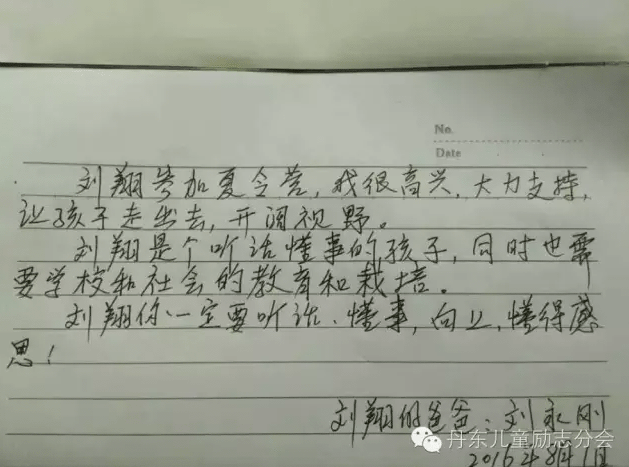 No.
Date
刘翔参加夏令营,我很高兴,大力支持,
让孩子走出去,开阔视野。
刘翔是个听话懂事的孩子,同时也需
要学校和社会的教育和栽培。
刘翔你一定要听话、懂事,向上,懂得感
恩!
刘翔的爸爸:刘永刚
丹东儿童励志分会
2015年8月1日